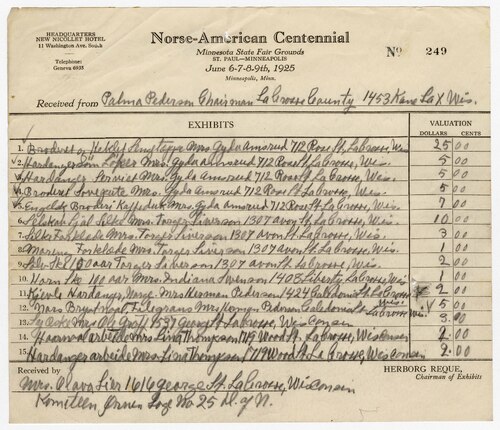 HEADQUARTERS
NEW NICOLLET HOTEL
11 Washington Ave. South
Telephone:
Geneva 6935
Norse-American Centennial
Minnesota State Fair Grounds
ST. PAUL—MINNEAPOLIS
June 6-7-8-9th, 1925
Minneapolis, Minn.
No 249
Received from Palma Pederson Chairman La Crosse County 1453 Kane LaX Wis.
EXHIBITS
VALUATION
DOLLARS CENTS
1. Broderi og Mrs Gyda Amsrud 712 Rose St. La Crosse, Wis 25 00
2. Hardanger Mrs. Gyda Amsrud 712 Rose St. La Crosse, Wis. 5 00
3. Hardanger Serviet Mrs. Gyda Amsrud 712 Rose St. La Crosse, Wis. 5 00
4. Broderi Mrs. Gyda Amsrud 712 Rose St. La Crosse, Wis. 5 00
5. Engelsk Broderi Kaffeduk Mrs. Gyda Amsrud 712 Rose St. La Crosse, Wis. 7 00
6. Silke Mrs. Torger Siverson 1307 Avon St. La Crosse, Wis. 10 00
7. Silke Forklæde Mrs. Torger Siverson 1307 Avon St. La Crosse, Wis. 3 00
8. Forklæde Mrs. Torger Siverson 1307 Avon St. La Crosse, Wis. 1 00
9. 150 aar Torger Siverson 1307 Avon St. La Crosse, Wis. 2 00
10. Horn Ske 100 aar Mrs. Indiana 1408 Liberty La Crosse, Wis. 1 00
11. Hardanger, Norge Mrs Herman Pedersen 1424 Caledonia St. La Crosse 2 00
12. Mrs Caledonia St. La Crosse Wis. 5 00
13. Mrs 1539 George St. La Crosse, Wisconsin 3 00
14. Mrs Ling Thompson 719 Wood St. La Crosse, Wisconsin 2 00
15. Hardangerarbeide Mrs. Ling Thompson 719 Wood St. La Crosse, Wisconsin 2 00
Received by
HERBORG REQUE,
Chairman of Exhibits
Mrs. Olava Lier 1616 George St. La Crosse, Wisconsin
Komiteen Ørnen Log No. 25 D. of N.